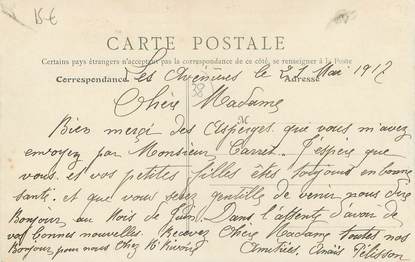 15€
CARTE POSTALE
Certains pays étrangers n'acceptant pas la correspondance de ce côté, se renseigner à la Poste
Correspondance Adresse
Les Avenières le 31 Mai 1917
38
Chère Madame
M
Bien merçi des asperges que vous m'avez
envoyez par Monsieur Carret. J'espère que
vous et vos petites filles êtes toujours en bonne
santé. et que vous serez gentille de venir nous dire
Bonjour au Mois de Juin. Dans l'attente d'avoir de
vos bonnes nouvelles. Recevez Chère Madame toutes nos
Amitiées. Anaïs Pélisson
Bonjour pour nous Chez Mr